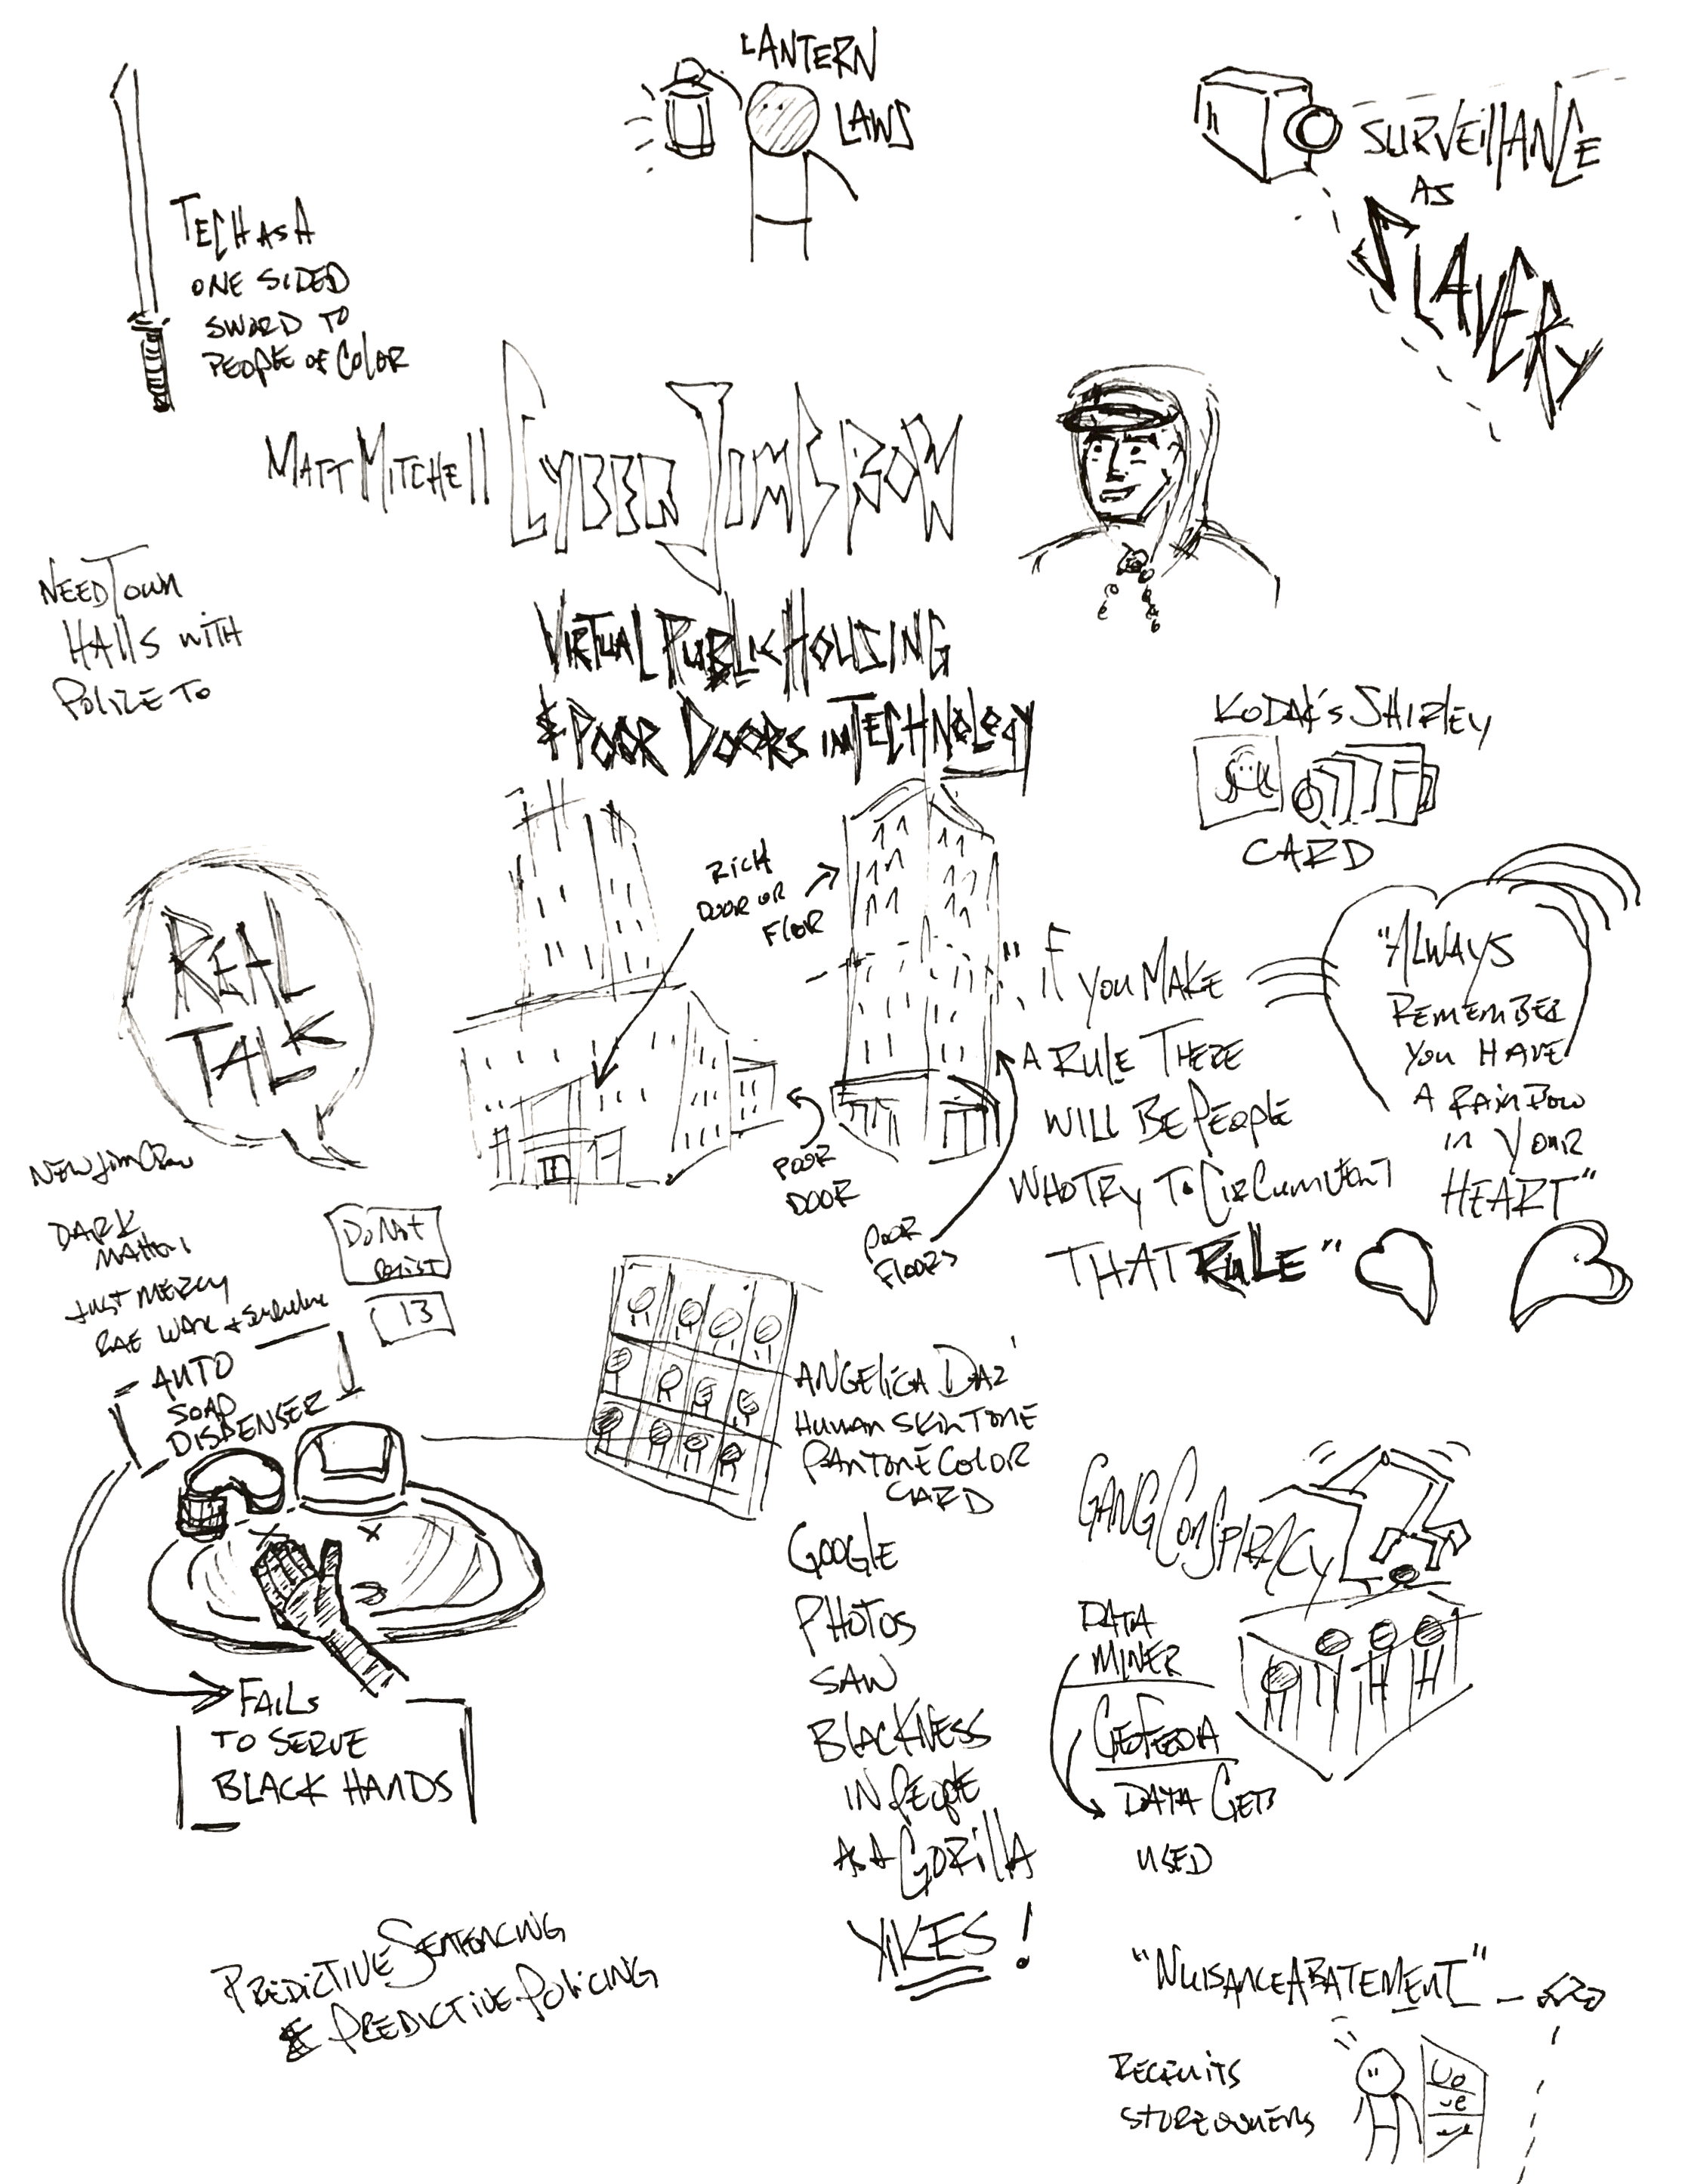 LANTERN
LAWS
SURVEILLANCE
AS
SLAVERY
TECH AS A
ONE SIDED
SWORD TO
PEOPLE OF COLOR
MATT MITCHELL CYBER JIM CROW
NEED TOWN
HALLS WITH
POLIZE TO
VIRTUAL PUBLIC HOUSING
& POOR DOORS IN TECHNOLOGY
KODAK'S SHIRLEY
CARD
RICH
DOOR OR
FLOOR
REAL
TALK
"IF YOU MAKE
A RULE THERE
WILL BE PEOPLE
WHO TRY TO CIRCUMVENT
THAT RULE"
"ALWAYS
REMEMBER
YOU HAVE
A RAINBOW
IN YOUR
HEART"
POOR
DOOR
POOR
FLOORS
NEW JIM CROW
DARK
JUST MERCY
DO NOT
RESIST
13
AUTO
SOAP
DISPENSER
FAILS
TO SERVE
BLACK HANDS
ANGELICA DAZ'
HUMAN SKIN TONE
PANTONE COLOR
CARD
GOOGLE
PHOTOS
SAW
BLACKNESS
IN PEOPLE
AS A GORILLA
YIKES!
GANG CONSPIRACY
DATA
MINER
GEOFEEDIA
DATA GETS
USED
PREDICTIVE SENTENCING
& PREDICTIVE POLICING
"NUISANCE ABATEMENT"
RECRUITS
STORE OWNERS